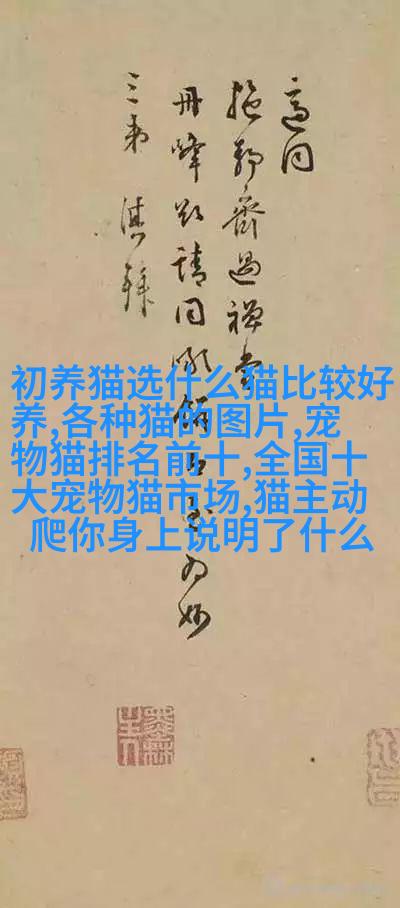 初养猫选什么猫比较好
养,各种猫的图片,宠
物猫排名前十,全国十
大宠物猫市场,猫主动
爬你身上说明了什么
齋過禪堂
請同
為妙
三弟
拜